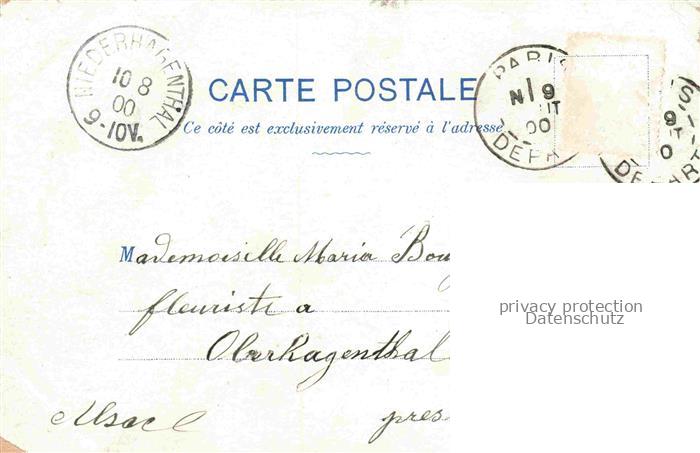 NIEDERHAGENTHAL
10 8
00
9-10V.
PARIS
N 19
IT
00
DEPA
9
IT
0
DEPART
CARTE POSTALE
Ce côté est exclusivement réservé à l'adresse
Mademoiselle Maria
fleuriste a
Oberhagenthal
Alsace pres
privacy protection
Datenschutz